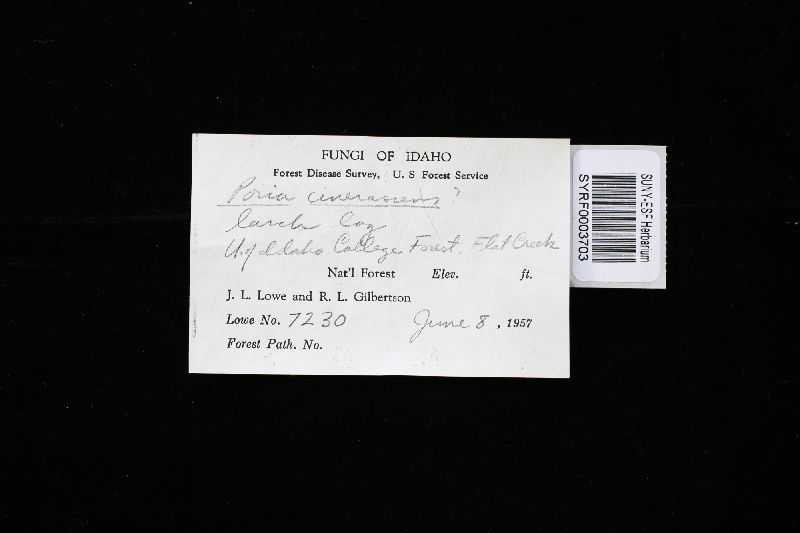 FUNGI OF IDAHO
Forest Disease Survey, U. S Forest Service
Poria cinerascens ?
larch log
U. of Idaho College Forest, Flat Creek
Nat'l Forest Elev. ft.
J. L. Lowe and R. L. Gilbertson
Lowe No. 7230 June 8, 1957
Forest Path. No.
SUNY-ESF Herbarium
SYRF0003703